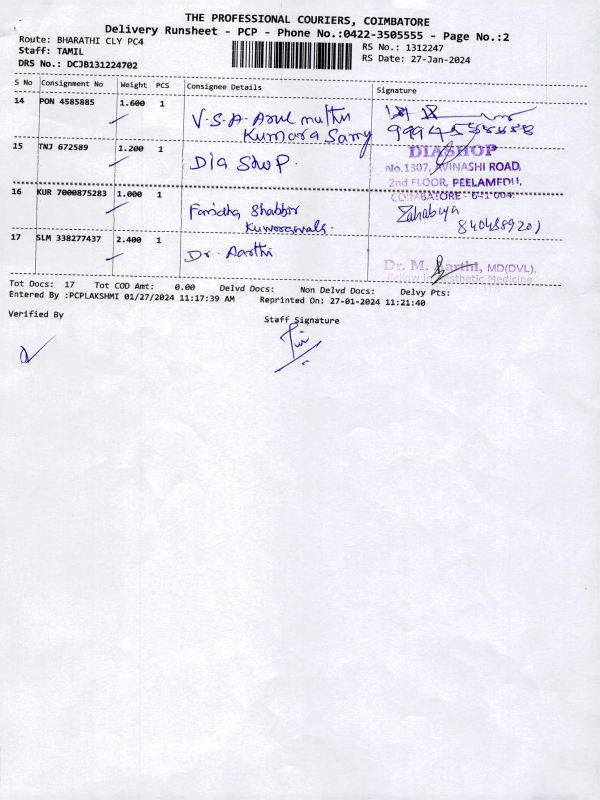 THE PROFESSIONAL COURIERS, COIMBATORE
Delivery Runsheet - PCP - Phone No.:0422-3505555 - Page No.:2
Route: BHARATHI CLY PC4
RS No.: 1312247
Staff: TAMIL
RS Date: 27-Jan-2024
DRS No.: DCJB131224702
S No Consignment No Weight PCS Consignee Details Signature
14 PON 4585885 1.600 1 V.S.A. Arul muthu
Kumara Samy
15 TNJ 672589 1.200 1 Dia Shop.
DIASHOP
No.1307, AVINASHI ROAD,
2nd FLOOR, PEELAMEDU,
COIMBATORE - 641 004.
16 KUR 7000875283 1.000 1 Faridha Shabbir
Zahabiya
17 SLM 338277437 2.400 1 Dr. Aarthi
Dr. M. Aarthi, MD(DVL).
Fellow in Aesthetic Medicine
Tot Docs: 17 Tot COD Amt: 0.00 Delvd Docs: Non Delvd Docs: Delvy Pts:
Entered By :PCPLAKSHMI 01/27/2024 11:17:39 AM Reprinted On: 27-01-2024 11:21:40
Verified By
Staff Signature